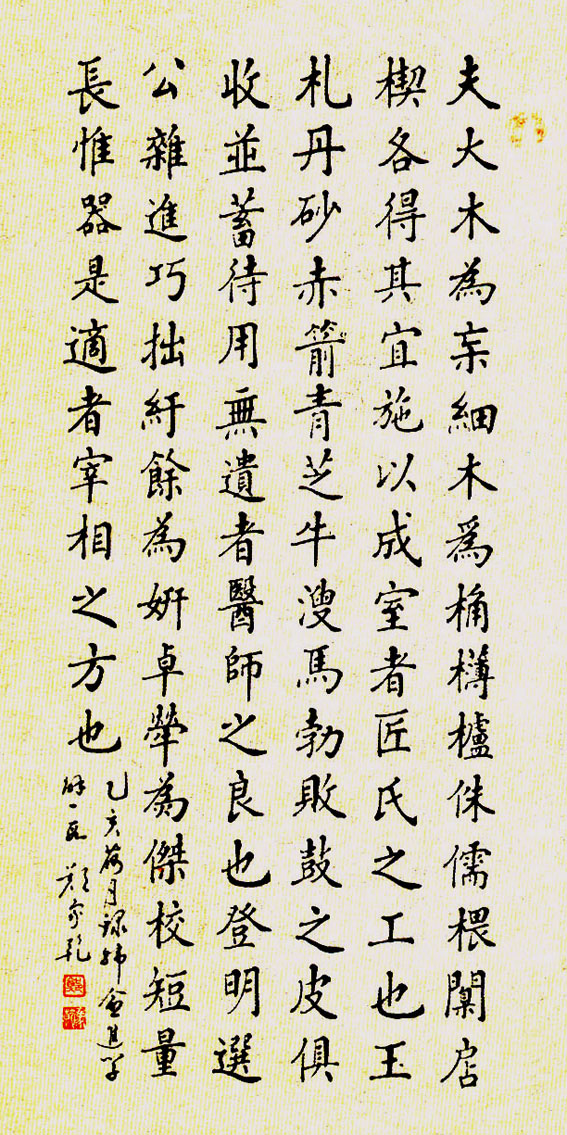 夫大木為杗細木爲桷欂櫨侏儒椳闑扂
楔各得其宜施以成室者匠氏之工也玉
札丹砂赤箭青芝牛溲馬勃敗鼓之皮俱
收並蓄待用無遺者醫師之良也登明選
公雜進巧拙紆餘為姸卓犖為傑校短量
長惟器是適者宰相之方也
乙亥荷月録韩愈進学
解一段